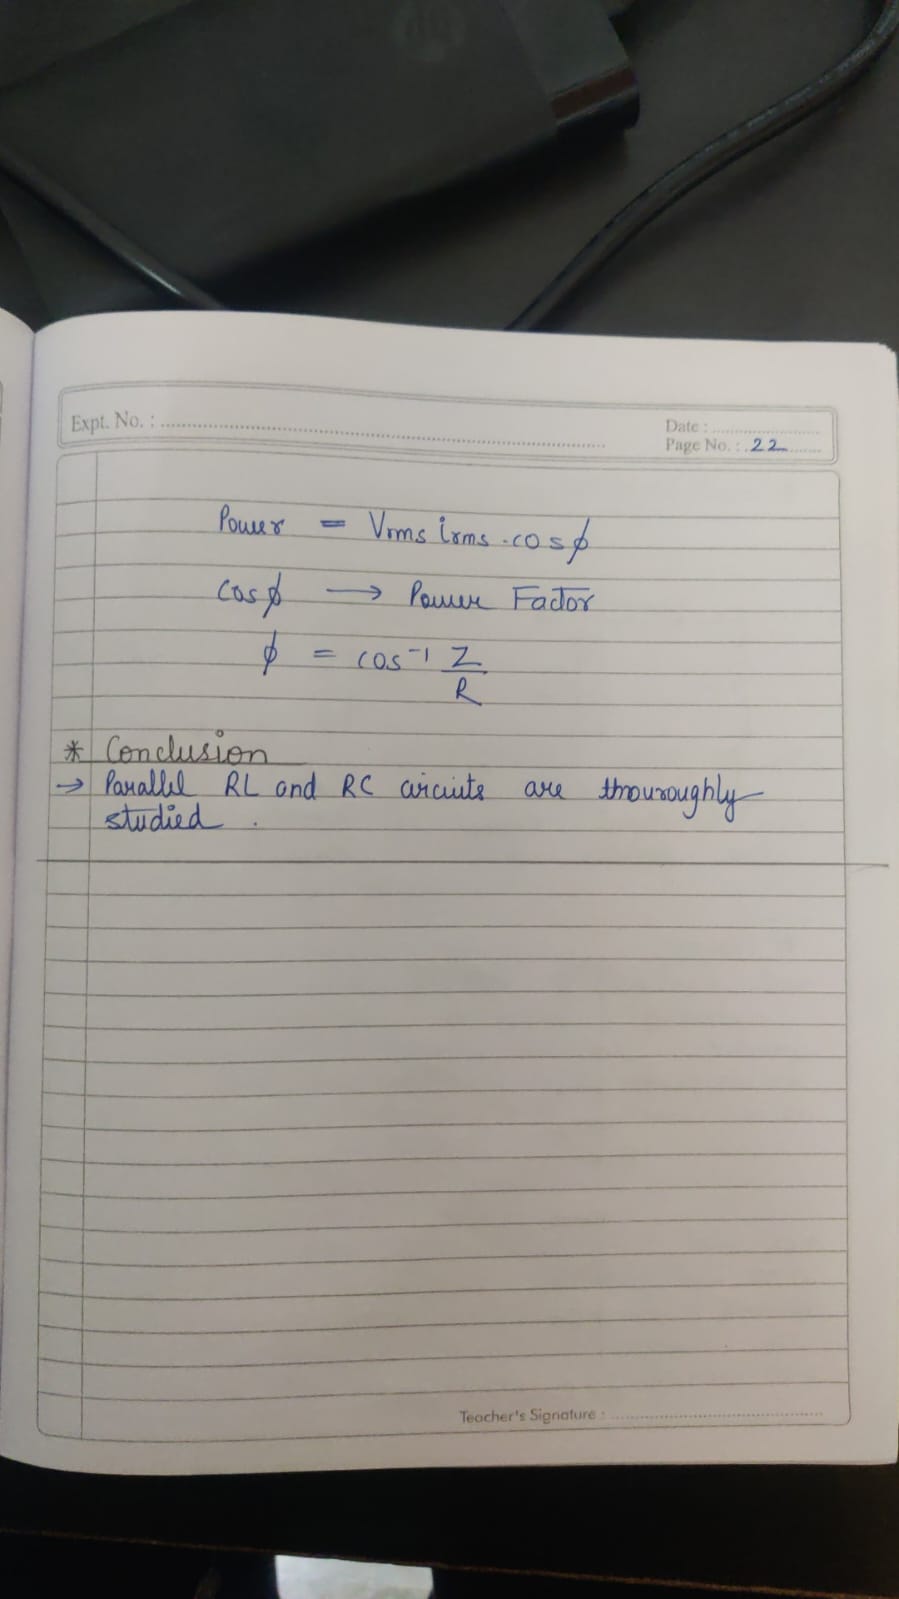 hp
Expt. No. :
Date :
Page No. : 22
Power = Vrms irms . cos ϕ
cos ϕ → Power Factor
ϕ = cos⁻¹ Z
R
* Conclusion
→ Parallel RL and RC circuits are thouroughly
studied .
Teacher's Signature :